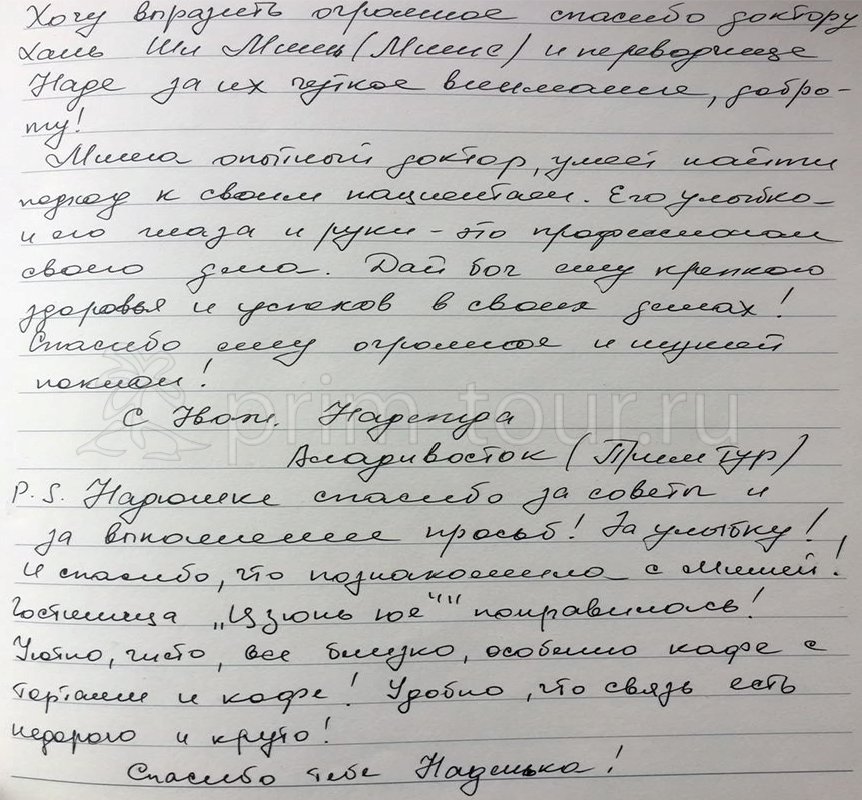 Хочу выразить огромное спасибо доктору
Хань Ши Минь (Мише) и переводчице
Наде за их чуткое внимание, добро-
ту!
Миша опытный доктор, умеет найти
подход к своим пациентам. Его улыбка
и его глаза и руки – это профессионал
своего дела. Дай бог ему крепкого
здоровья и успехов в своих делах!
Спасибо ему огромное и низкий
поклон!
С Уваж. Надежда
prim-tour.ru
Владивосток (Прим Тур)
P.S. Надюшке спасибо за советы и
за выполнение просьб! За улыбку!
И спасибо, что познакомила с Мишей!
Гостиница „Цзюнь юе" понравилась!
Уютно, чисто, все близко, особенно кафе с
тортами и кофе! Удобно, что связь есть
недорого и круто!
Спасибо тебе Наденька!